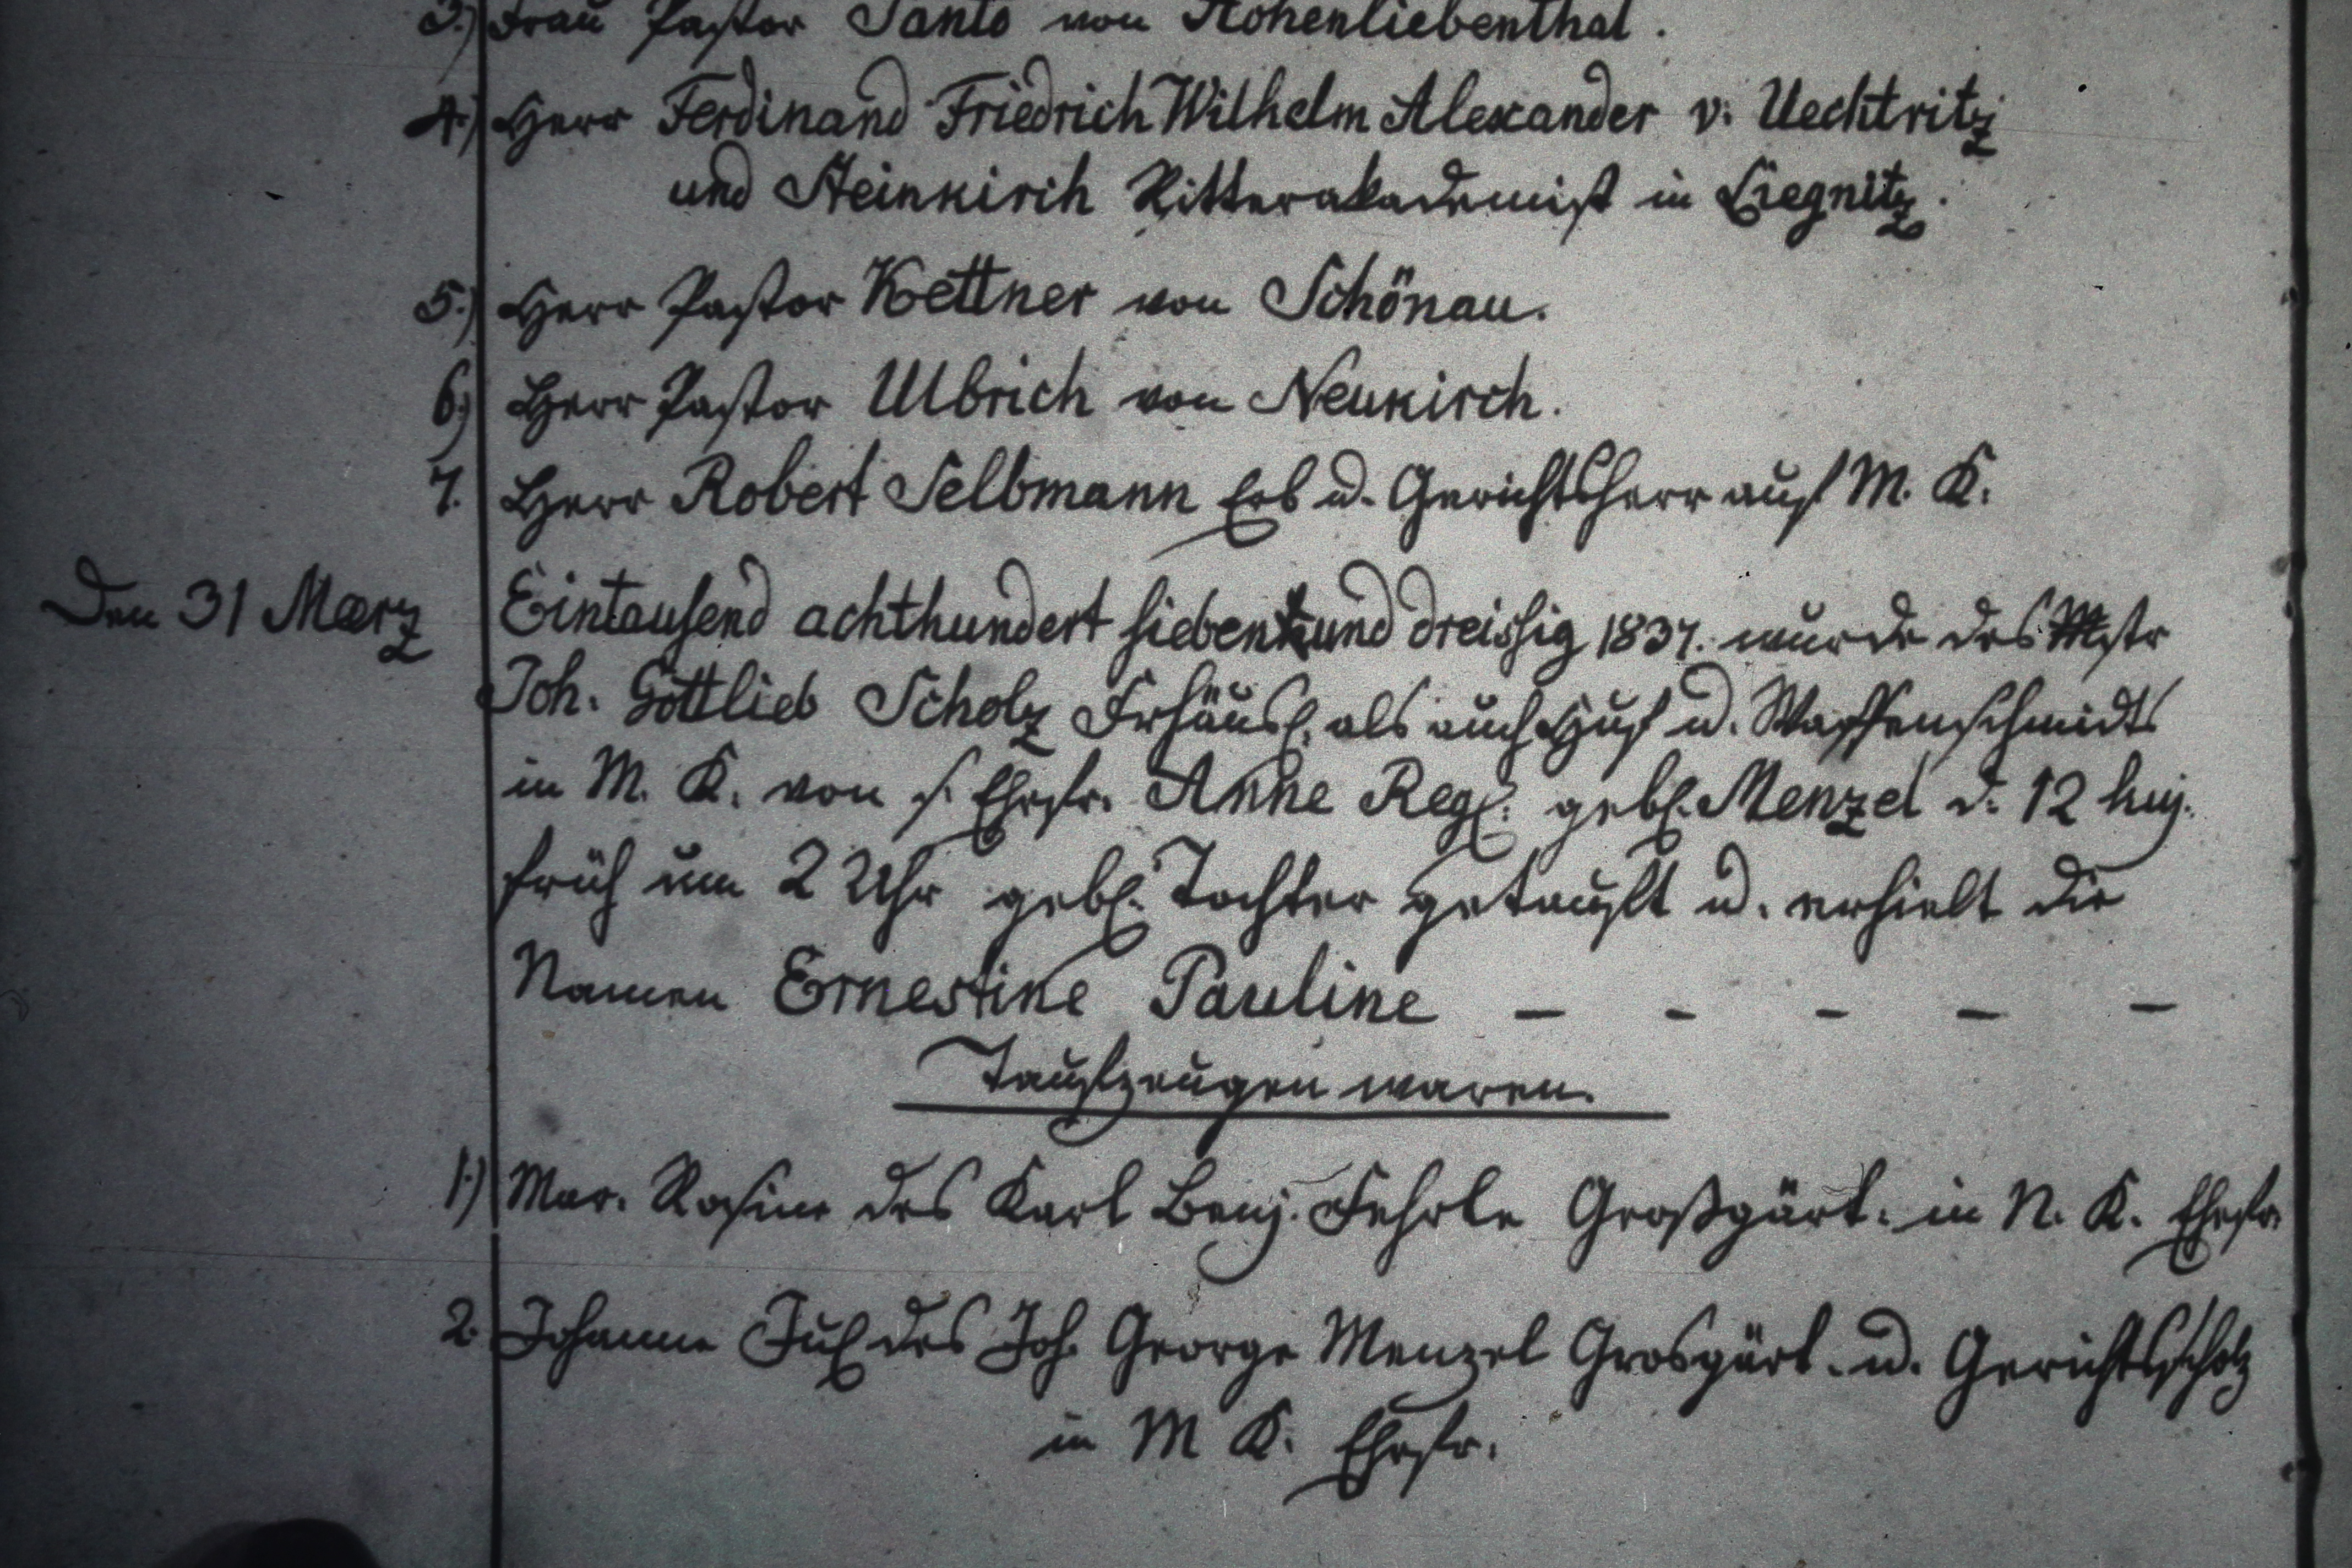 3.) Frau Pastor Santo von Hohenliebenthal.
4.) Herr Ferdinand Friedrich Wilhelm Alexander v. Uechtritz
und Steinkirch Ritterakademist in Liegnitz.
5.) Herr Pastor Kettner von Schönau.
6.) Herr Pastor Ulbrich von Neukirch.
7. Herr Robert Selbmann Erb u. Gerichtsherr auf M. K.
Den 31 Maerz Eintausend achthundert sieben und dreissig 1837. wurde des Mstr
Joh. Gottlieb Scholz Frhäusl. als auch Huf u. Waffenschmidts
in M. K. von s. Ehefr. Anne Reg. geb. Menzel d. 12 huj.
früh um 2 Uhr geb. Tochter getauft u. erhielt die
Namen Ernestine Pauline — - - — —
Taufzeugen waren.
1.) Mar. Rosine des Karl Benj. Fehrle Großgärt. in N. K. Ehefr.
2. Johanne Jul des Joh. George Menzel Grosgärt. u. Gerichtsscholz
in M K. Ehefr.